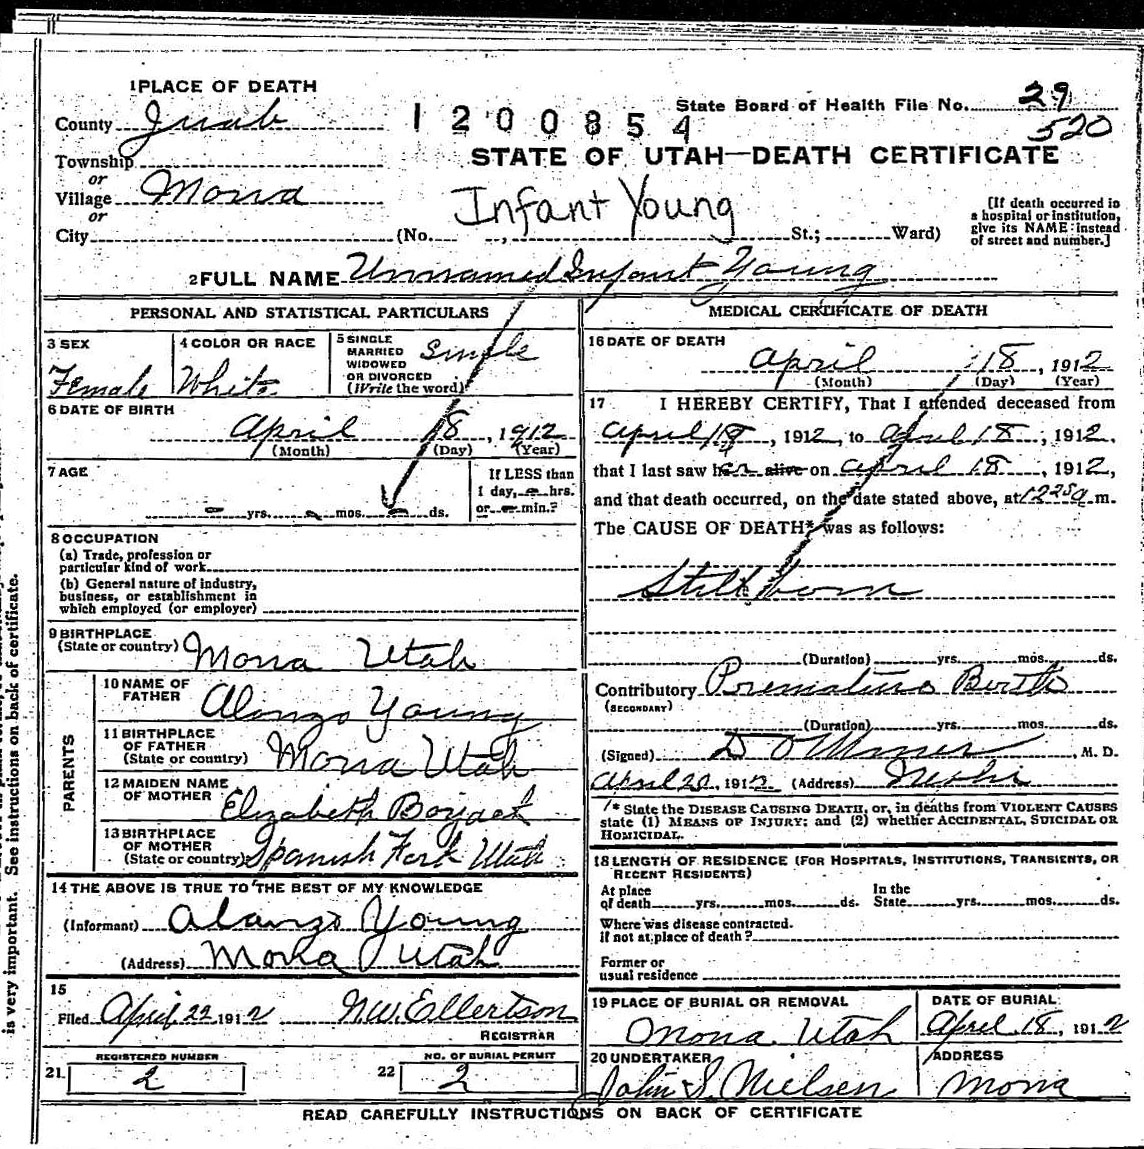 1 PLACE OF DEATH
State Board of Health File No. 29
County Juab
1200854
520
Township
STATE OF UTAH—DEATH CERTIFICATE
or
Village Mona
Infant Young
or
City (No. , St.; Ward)
[If death occurred in
a hospital or institution,
give its NAME instead
of street and number.]
2 FULL NAME Unnamed Infant Young
PERSONAL AND STATISTICAL PARTICULARS
3 SEX
Female
4 COLOR OR RACE
White
5 SINGLE
MARRIED
WIDOWED
OR DIVORCED
(Write the word)
Single
6 DATE OF BIRTH
April 18, 1912
(Month) (Day) (Year)
7 AGE
yrs. mos. ds.
If LESS than
1 day, hrs.
or min.?
8 OCCUPATION
(a) Trade, profession or
particular kind of work
(b) General nature of industry,
business, or establishment in
which employed (or employer)
9 BIRTHPLACE
(State or country) Mona Utah
PARENTS
10 NAME OF
FATHER Alonzo Young
11 BIRTHPLACE
OF FATHER
(State or country) Mona Utah
12 MAIDEN NAME
OF MOTHER Elizabeth
13 BIRTHPLACE
OF MOTHER
(State or country) Spanish Fork Utah
14 THE ABOVE IS TRUE TO THE BEST OF MY KNOWLEDGE
(Informant) Alonzo Young
(Address) Mona Utah
15
Filed April 22 1912 N.W. Ellertson
REGISTRAR
REGISTERED NUMBER
21 2
NO. OF BURIAL PERMIT
22 2
MEDICAL CERTIFICATE OF DEATH
16 DATE OF DEATH
April 18, 1912
(Month) (Day) (Year)
17 I HEREBY CERTIFY, That I attended deceased from
April 18, 1912, to April 18, 1912,
that I last saw her alive on April 18, 1912,
and that death occurred, on the date stated above, at 1225 a m.
The CAUSE OF DEATH* was as follows:
Still born
(Duration) yrs. mos. ds.
Contributory Premature Birth
(SECONDARY)
(Duration) yrs. mos. ds.
(Signed) D O Miner, M. D.
April 20, 1912 (Address) Nephi
* State the DISEASE CAUSING DEATH, or, in deaths from VIOLENT CAUSES
state (1) MEANS OF INJURY; and (2) whether ACCIDENTAL, SUICIDAL OR
HOMICIDAL.
18 LENGTH OF RESIDENCE (FOR HOSPITALS, INSTITUTIONS, TRANSIENTS, OR
RECENT RESIDENTS)
At place
of death yrs. mos. ds.
In the
State yrs. mos. ds.
Where was disease contracted.
if not at place of death?
Former or
usual residence
19 PLACE OF BURIAL OR REMOVAL
Mona Utah
DATE OF BURIAL
April 18, 1912
20 UNDERTAKER
John S. Nielsen
ADDRESS
Mona
READ CAREFULLY INSTRUCTIONS ON BACK OF CERTIFICATE
is very important. See instructions on back of certificate.